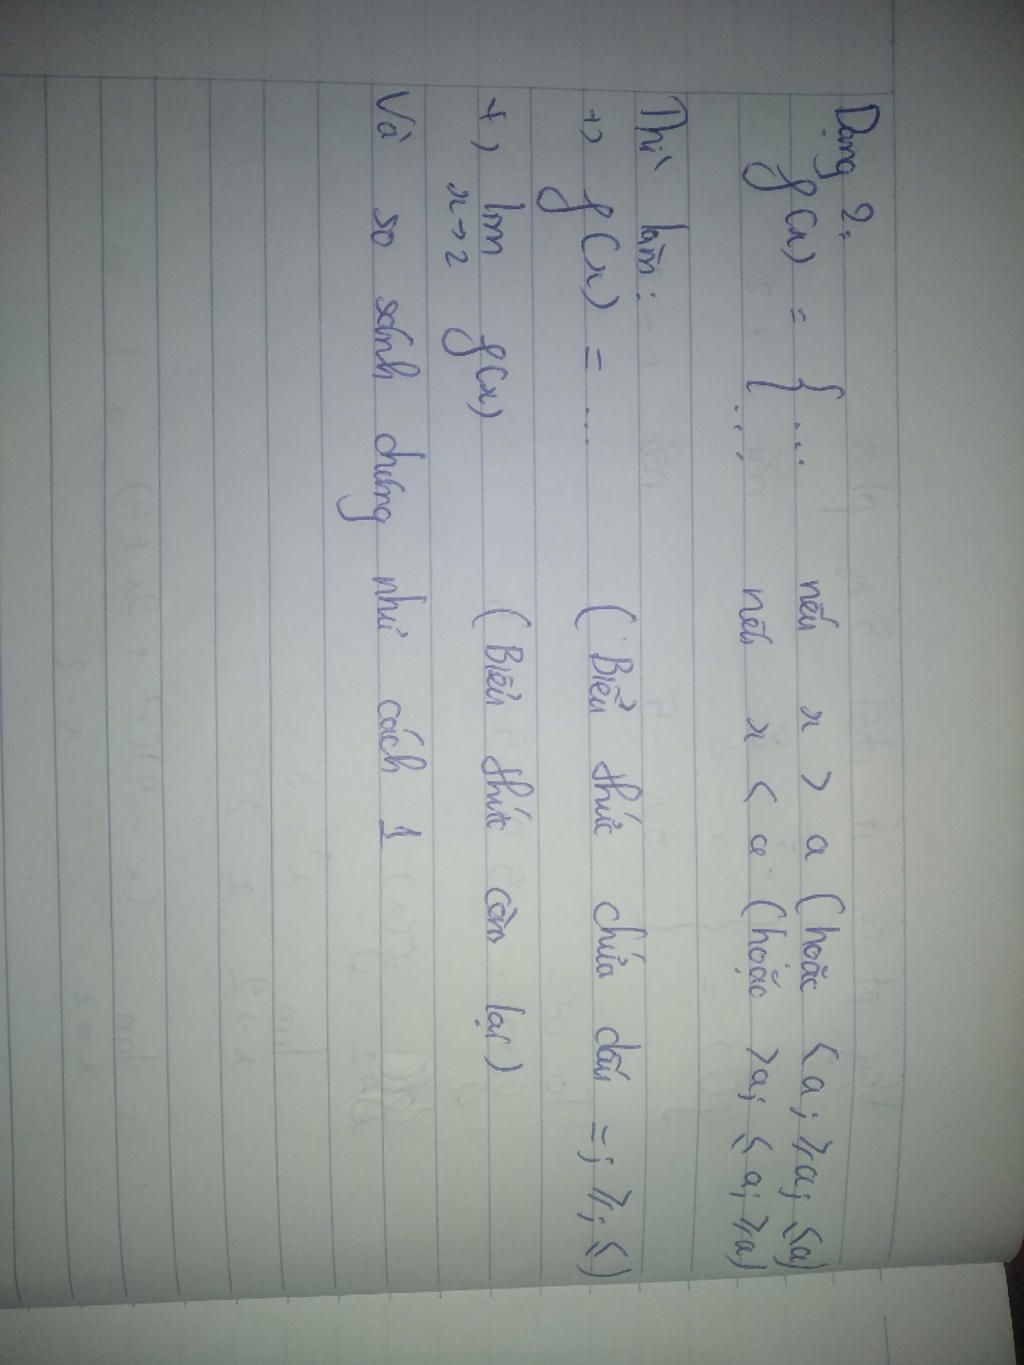 Dạng 2:
f(x) = { ... nếu x > a (hoặc <a; ⩾a; ⩽a)
... nếu x < a (hoặc >a; ⩽a; ⩾a)
Thì làm:
+) f(x) = ... (Biểu thức chứa dấu =; ⩾; ⩽)
+) lim f(x) (Biểu thức còn lại)
x→2
Và so sánh chúng như cách 1